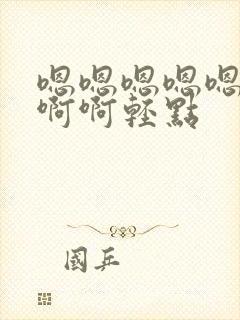 嗯嗯嗯嗯嗯
啊啊輕點
國乒